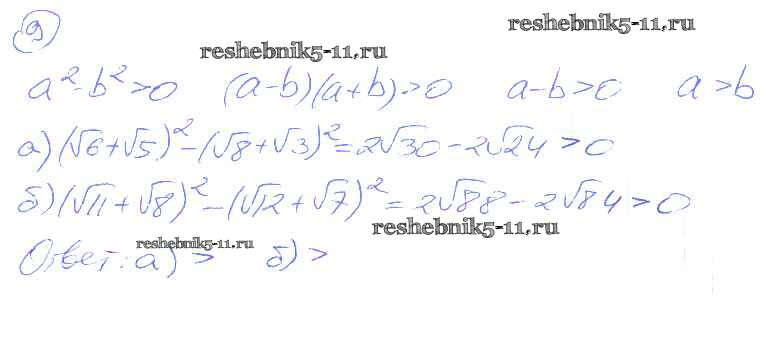 9
reshebnik5-11.ru
reshebnik5-11.ru
a²-b²>0 (a-b)(a+b)>0 a-b>0 a>b
а) (√6+√5)²-(√8+√3)²=2√30-2√24>0
б) (√11+√8)²-(√12+√7)²=2√88-2√84>0
reshebnik5-11.ru
reshebnik5-11.ru
Ответ: а) > б) >